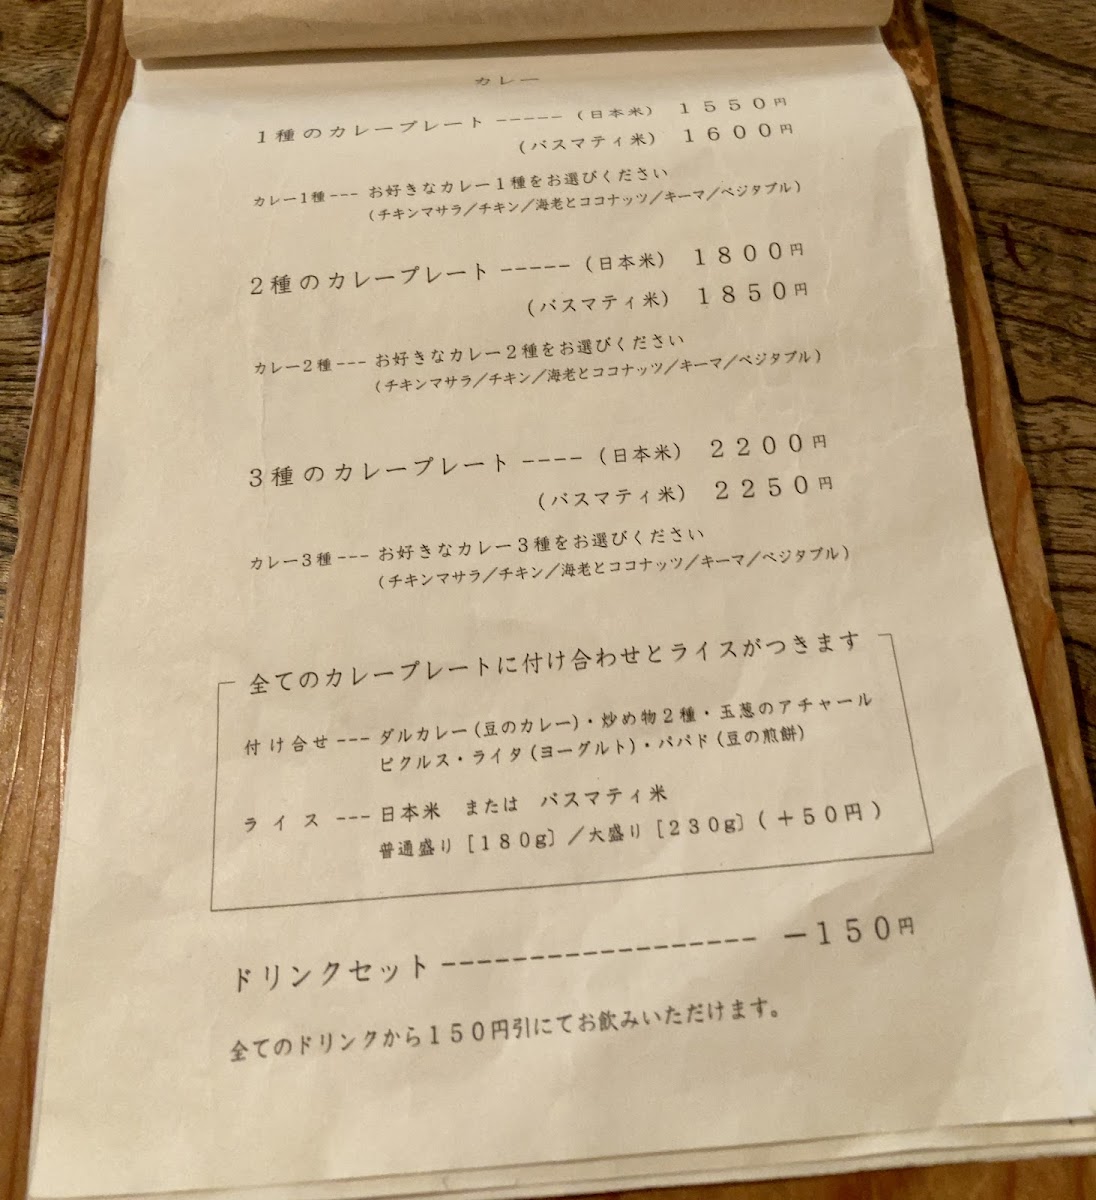 カレー
1種のカレープレート -----（日本米） 1550円
（バスマティ米） 1600円
カレー1種--- お好きなカレー1種をお選びください
（チキンマサラ／チキン／海老とココナッツ／キーマ／ベジタブル）
2種のカレープレート -----（日本米） 1800円
（バスマティ米） 1850円
カレー2種--- お好きなカレー2種をお選びください
（チキンマサラ／チキン／海老とココナッツ／キーマ／ベジタブル）
3種のカレープレート ----（日本米） 2200円
（バスマティ米） 2250円
カレー3種--- お好きなカレー3種をお選びください
（チキンマサラ／チキン／海老とココナッツ／キーマ／ベジタブル）
全てのカレープレートに付け合わせとライスがつきます
付け合せ--- ダルカレー(豆のカレー)・炒め物2種・玉葱のアチャール
ピクルス・ライタ(ヨーグルト)・パパド(豆の煎餅)
ライス --- 日本米 または バスマティ米
普通盛り［180g］／大盛り［230g］(＋50円)
ドリンクセット------------------ －150円
全てのドリンクから150円引にてお飲みいただけます。